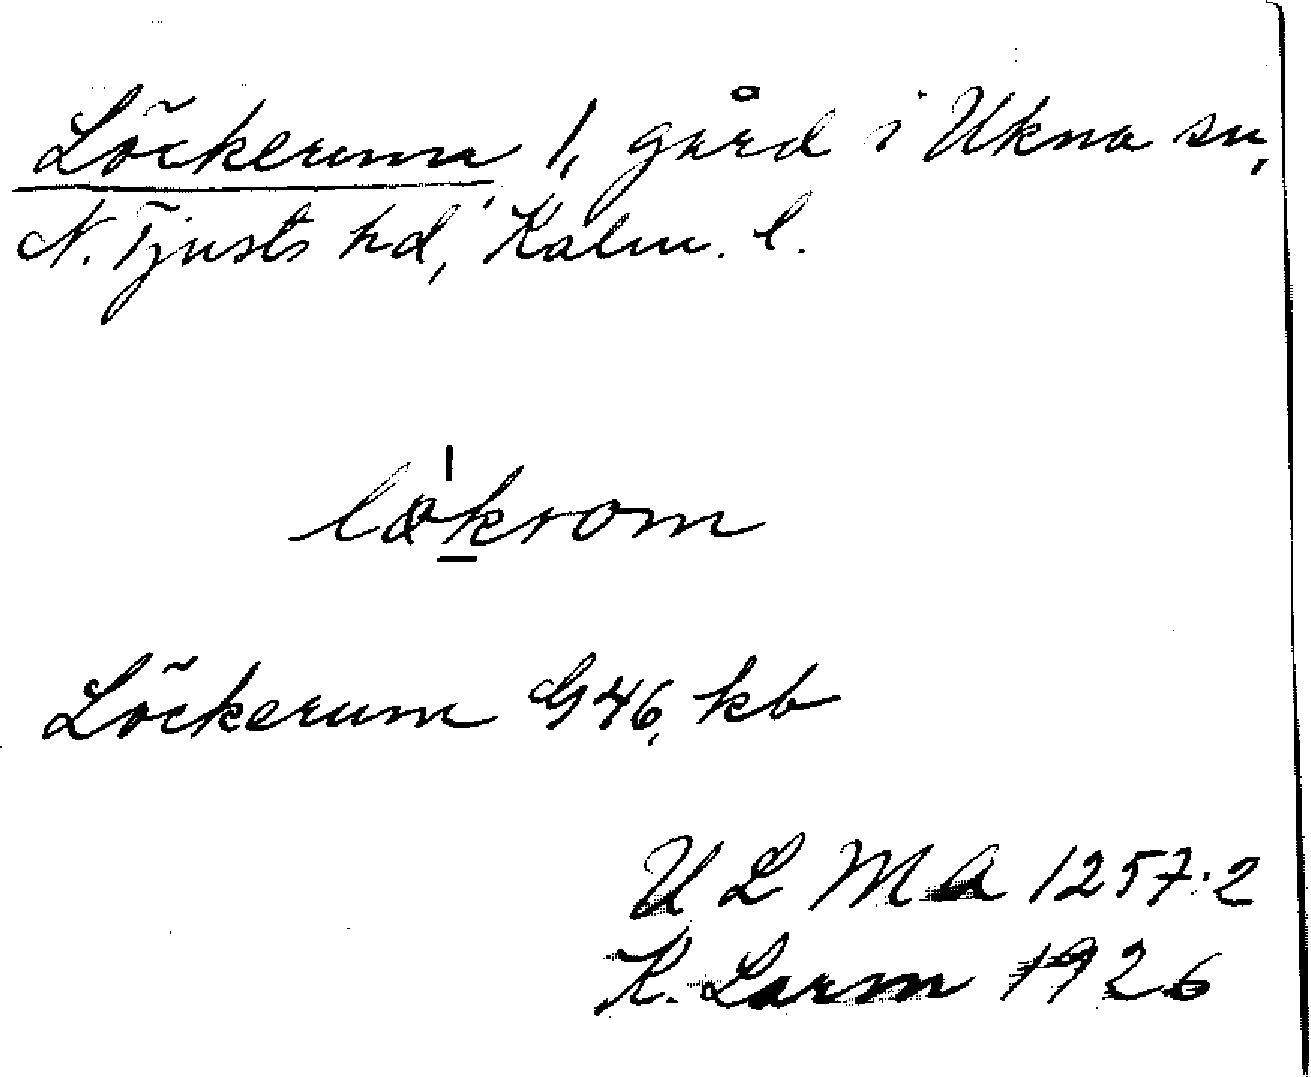 Löckerum, 1, gård i Ukna sn,
N. Tjusts hd, Kalm. l.
lø̀ḵrom
Löckerum G46, kb
ULMA 1257:2
K. Larm 1926